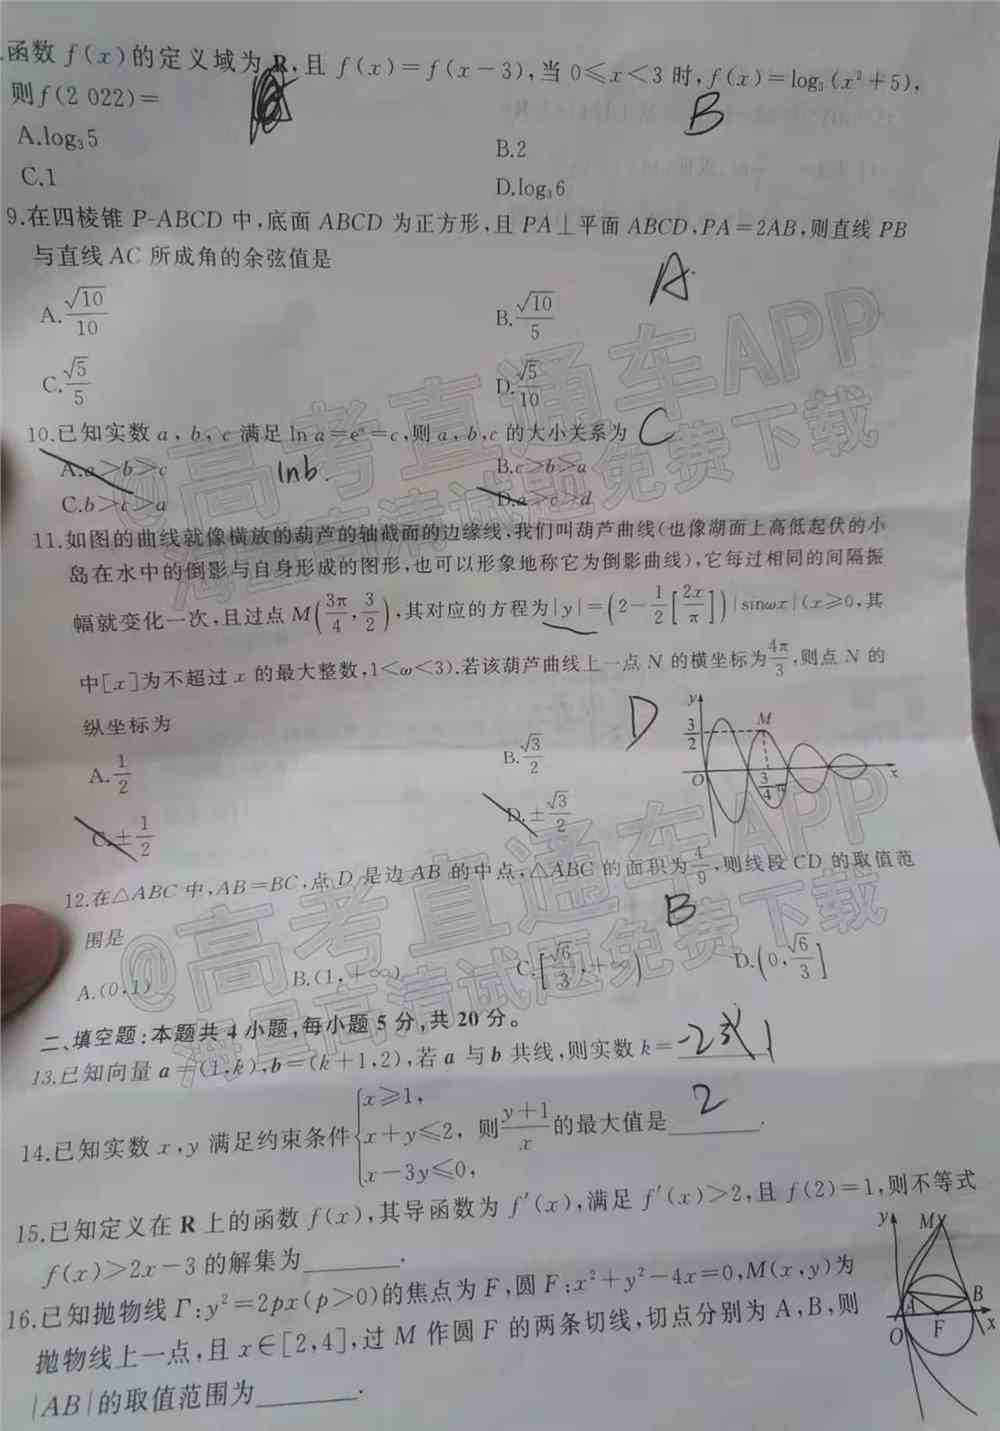 .函数 f(x)的定义域为 R,且 f(x)=f(x-3),当 0≤x<3 时,f(x)=log₃(x²+5),
则f(2 022)=
B
A.log₃5
B.2
C.1
D.log₃6
9.在四棱锥 P-ABCD 中,底面 ABCD 为正方形,且 PA⊥平面 ABCD,PA=2AB,则直线 PB
与直线 AC 所成角的余弦值是
A
A.√10/10
B.√10/5
C.√5/5
D.√5/10
10.已知实数 a, b, c 满足 ln a=eᵇ=c,则 a, b,c 的大小关系为
C
A.a>b>c
lnb.
B.c>b>a
C.b>c>a
D.a>c>d
11.如图的曲线就像横放的葫芦的轴截面的边缘线,我们叫葫芦曲线(也像湖面上高低起伏的小
岛在水中的倒影与自身形成的图形,也可以形象地称它为倒影曲线),它每过相同的间隔振
幅就变化一次,且过点 M(3π/4,3/2),其对应的方程为|y|=(2-1/2[2x/π])|sinωx|(x≥0,其
中[x]为不超过 x 的最大整数,1<ω<3).若该葫芦曲线上一点 N 的横坐标为4π/3,则点 N 的
纵坐标为
D
A.1/2
B.√3/2
C.±1/2
D.±√3/2
y
3/2
M
O
3/4π
x
12.在△ABC 中,AB=BC,点 D 是边 AB 的中点,△ABC 的面积为4/9,则线段 CD 的取值范
围是
B
A.(0,1)
B.(1,+∞)
C.[√6/3,+∞)
D.(0,√6/3]
二、填空题:本题共 4 小题,每小题 5 分,共 20 分。
13.已知向量 a=(1,k),b=(k+1,2),若 a 与 b 共线,则实数 k=-2或1
14.已知实数 x,y 满足约束条件{x≥1, x+y≤2, x-3y≤0, 则(y+1)/x的最大值是 2 .
15.已知定义在 R 上的函数 f(x),其导函数为 f′(x),满足 f′(x)>2,且 f(2)=1,则不等式
f(x)>2x-3 的解集为________.
16.已知抛物线 Γ:y²=2px(p>0)的焦点为 F,圆 F:x²+y²-4x=0,M(x,y)为
抛物线上一点,且 x∈[2,4],过 M 作圆 F 的两条切线,切点分别为 A,B,则
|AB|的取值范围为________.
y
M
A
B
O
F
x
@高考直通车APP
海量高清试题免费下载
@高考直通车APP
海量高清试题免费下载